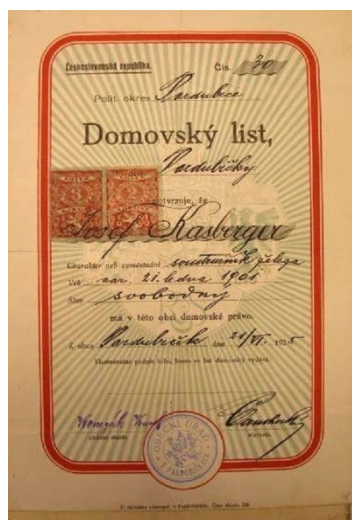 Československá republika.
Čís. 30
Polit. okres Pardubice
Domovský list,
Pardubičky
potvrzuje, že
Josef Kasberger
Charakter neb zaměstnání soustružník
Věk nar. 21. ledna 1901
Stav svobodný
má v této obci domovské právo.
Z obce Pardubiček dne 21/VI. 1925
Vlastnoruční podpis toho, komu se list domovský vydává.
starosta.
OBECNÍ ÚŘAD